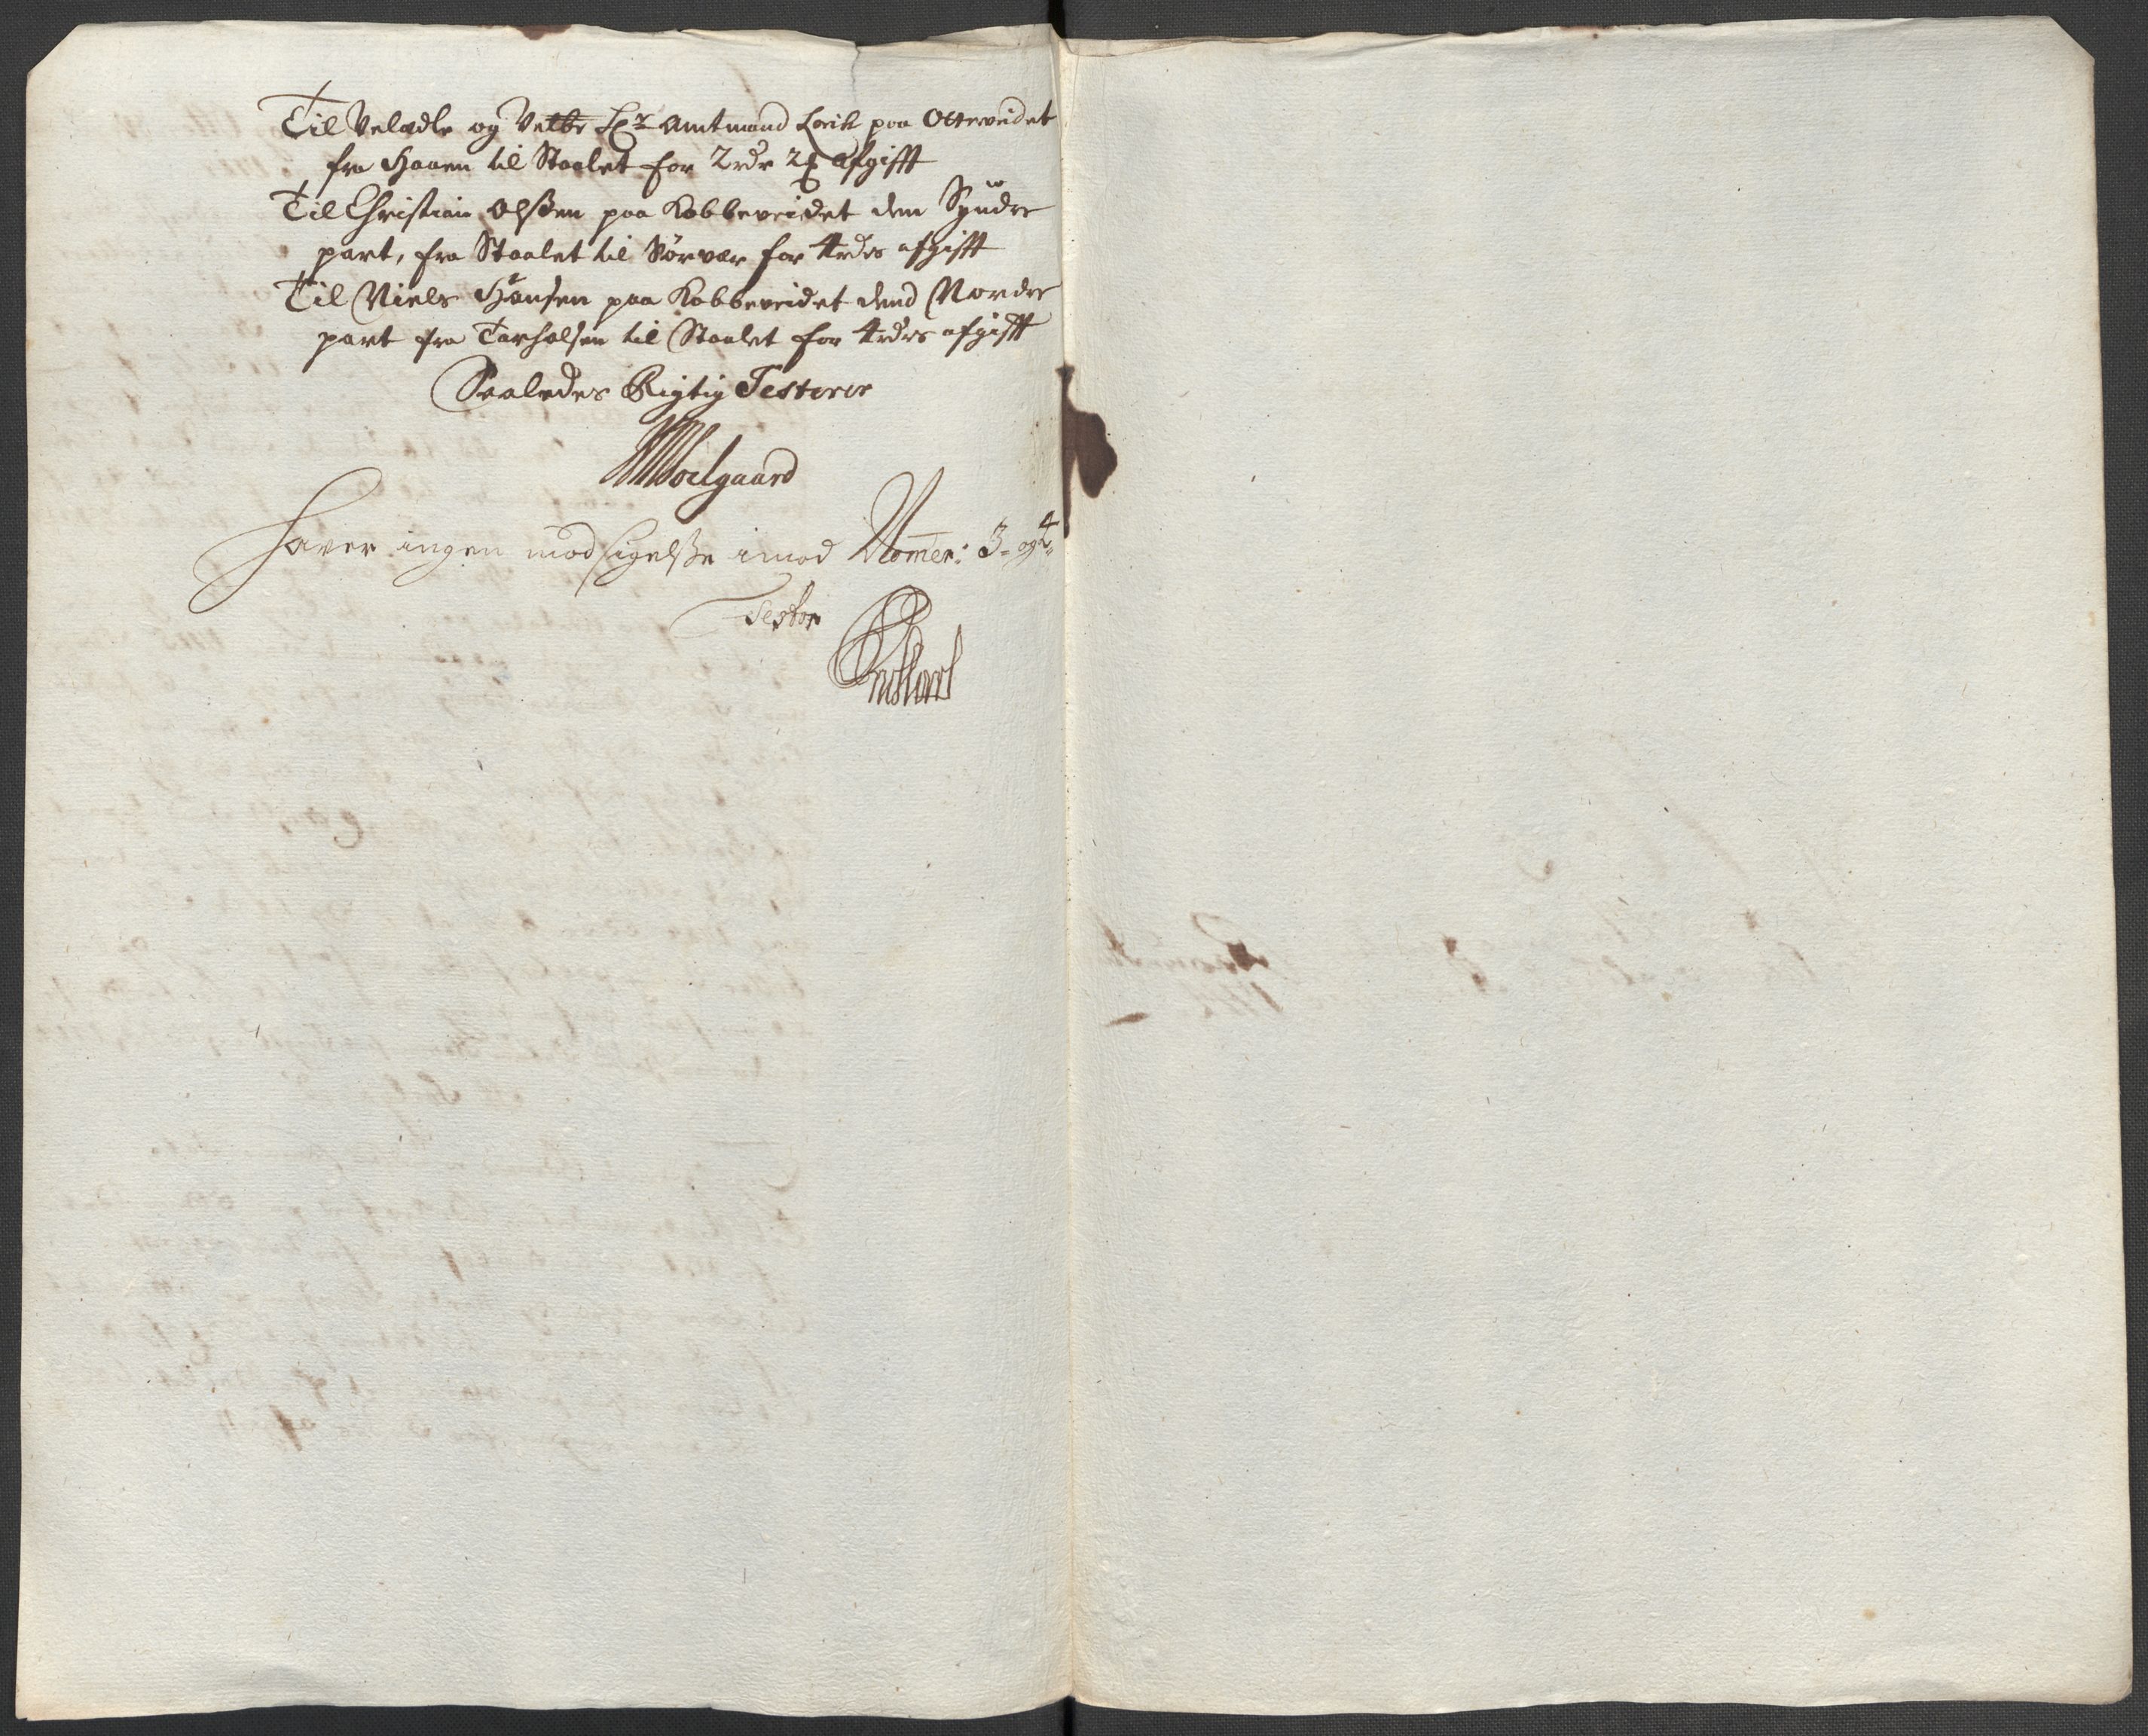 Til Velædle og Velbr Hr Amtmand Lorik paa Otterveidet
fra Haaen til Staalet for 2rdr 2 afgifft
Til Christian Olßen paa Kobbeveidet den Syndre
part, fra Staalet til Sørvær for 4rdrs afgifft
Til Niels Hansen paa Kobbeveidet dend Nordre
part fra Tarhalsen til Staalet for 4rdrs afgifft
Saaledes Rigtig Testerer
Wolgaard
Haver ingen modsigelße imod Nomer: 3- og 4-
Tester